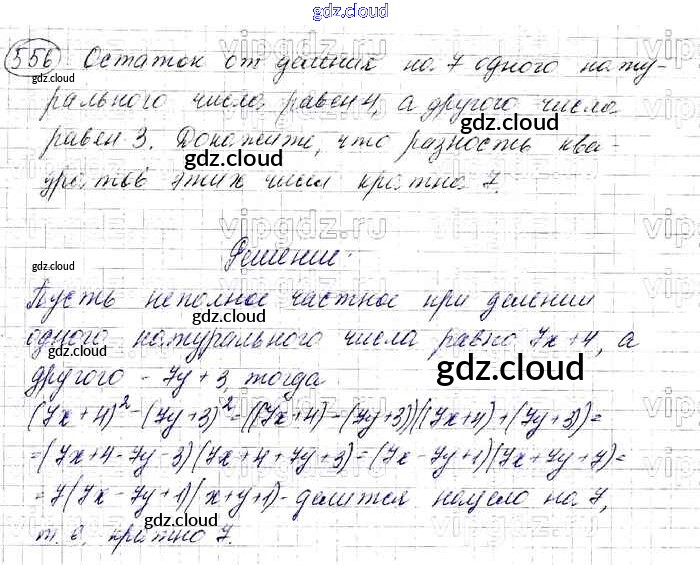 gdz.cloud
556 Остаток от деления на 7 одного нату-
рального числа равен 4, а другого числа
равен 3. Докажите, что разность ква-
дратов этих чисел кратна 7.
Решение:
Пусть неполное частное при делении
одного натурального числа равно 7x+4, а
другого - 7y+3, тогда
(7x+4)²-(7y+3)²=((7x+4)-(7y+3))((7x+4)+(7y+3))=
=(7x+4-7y-3)(7x+4+7y+3)=(7x-7y+1)(7x+7y+7)=
=7(7x-7y+1)(x+y+1)-делится нацело на 7,
т. е. кратно 7.